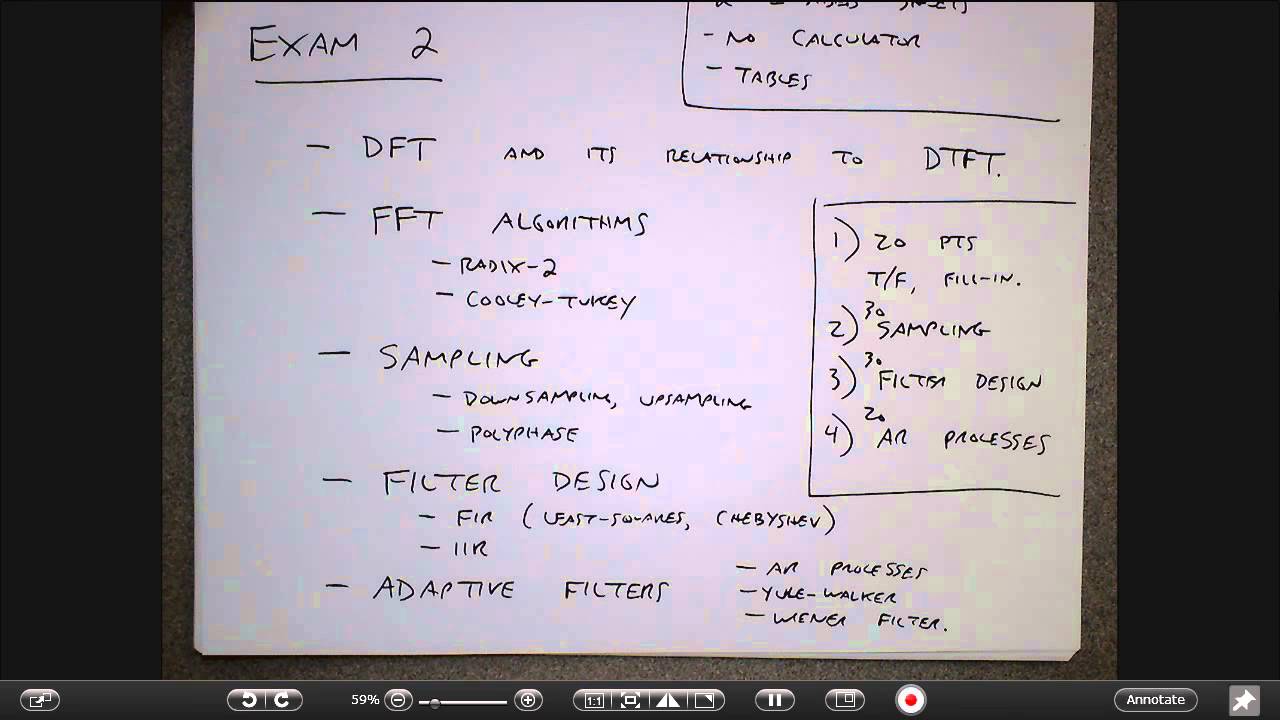 EXAM 2
SHEETS
- NO CALCULATOR
- TABLES
- DFT AND ITS RELATIONSHIP TO DTFT.
- FFT ALGORITHMS
- RADIX-2
- COOLEY-TUKEY
- SAMPLING
- DOWNSAMPLING, UPSAMPLING
- POLYPHASE
- FILTER DESIGN
- FIR (LEAST-SQUARES, CHEBYSHEV)
- IIR
- ADAPTIVE FILTERS
- AR PROCESSES
- YULE-WALKER
- WIENER FILTER.
1) 20 PTS
T/F, FILL-IN.
2) 30 SAMPLING
3) 30 FILTER DESIGN
4) 20 AR PROCESSES
59%
1:1
Annotate